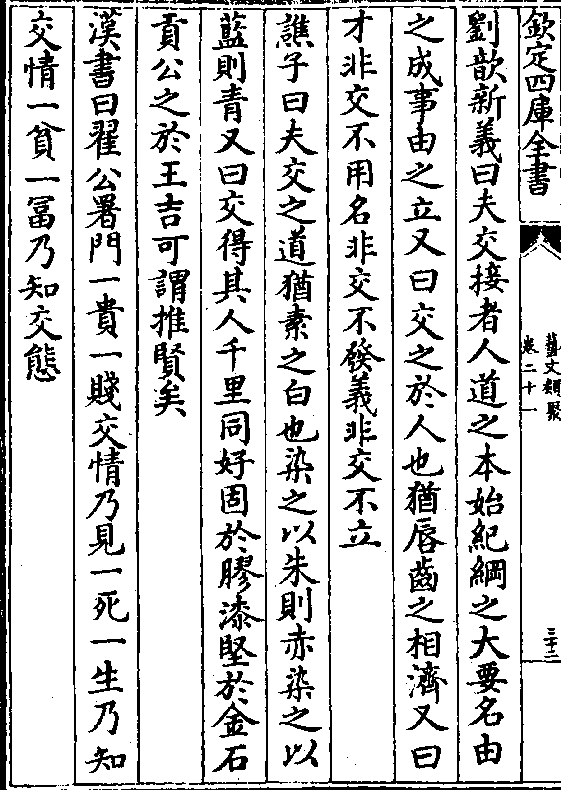 欽定四庫全書
藝文類聚
卷二十一
三十二
劉歆新義曰夫交接者人道之本始紀綱之大要名由
之成事由之立又曰交之於人也猶唇齒之相濟又曰
才非交不用名非交不發義非交不立
譙子曰夫交之道猶素之白也染之以朱則赤染之以
藍則青又曰交得其人千里同好固於膠漆堅於金石
貢公之於王吉可謂推賢矣
漢書曰翟公署門一貴一賤交情乃見一死一生乃知
交情一貧一冨乃知交態